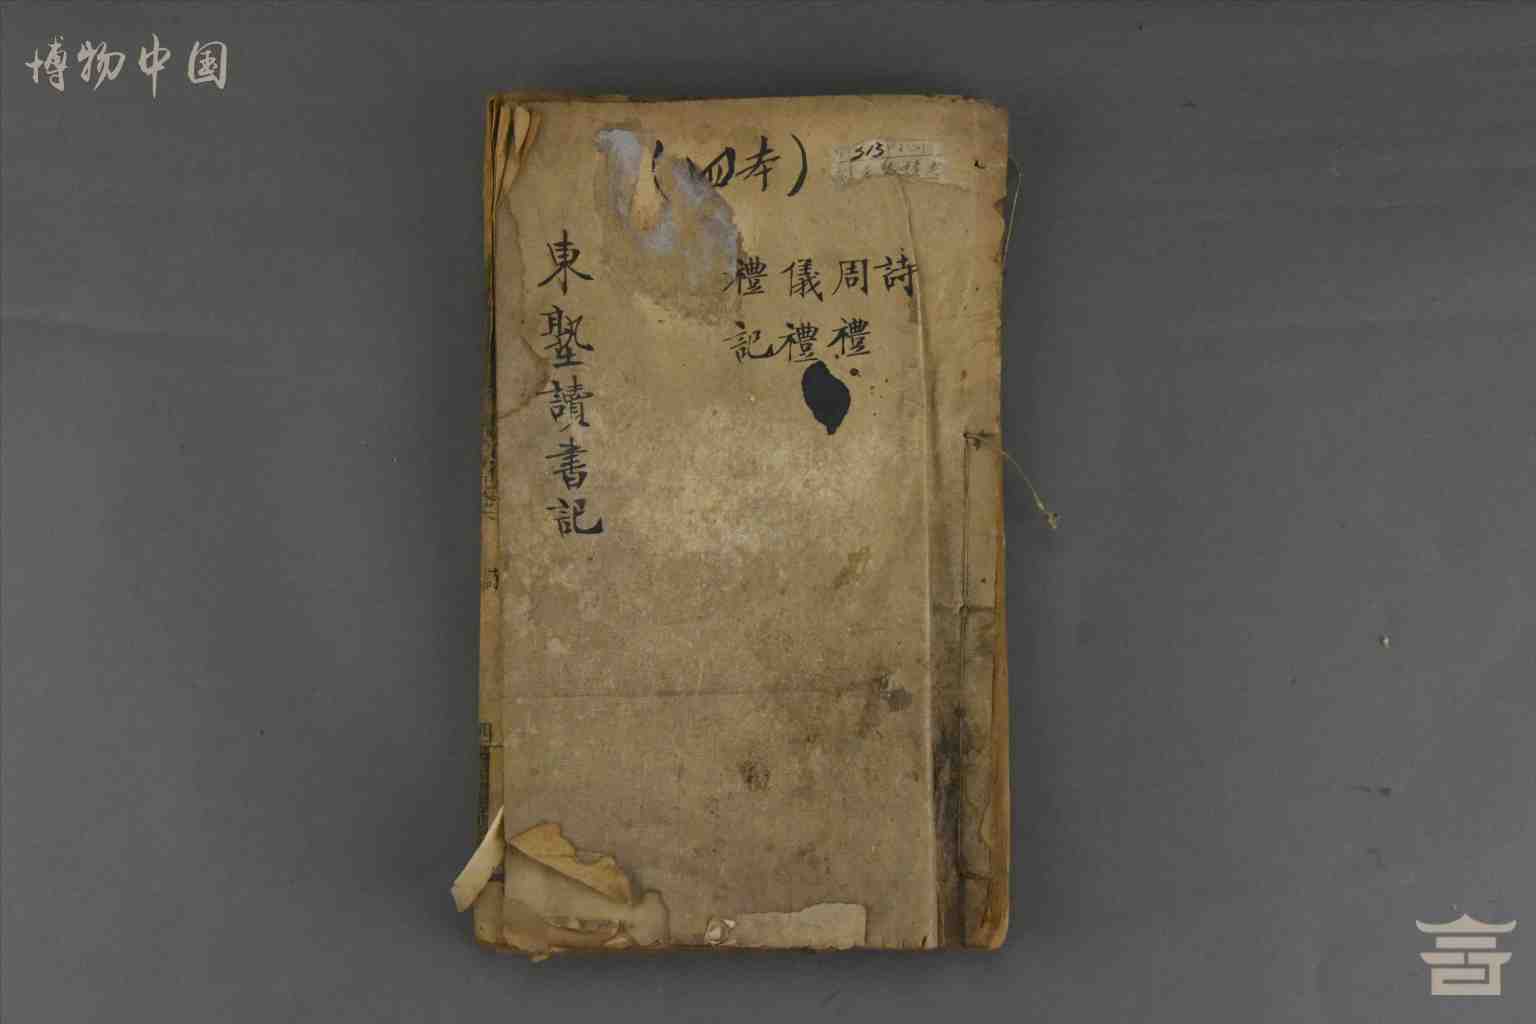 博物中国
(四本)
313
詩
周禮
儀禮
禮記
東塾讀書記